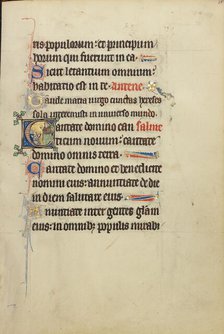 tis populorum: et principum
horum qui fuerunt in ea.
Sicut letantium omnium
habitatio est in te. Antene
Gaude maria virgo cunctas hereses
sola interemisti in universo mundo.
Cantate domino can
ticum novum: cantate
domino omnis terra.
Cantate domino et benedicite
nomini eius: annuntiate de die
in diem salutare eius.
Annuntiate inter gentes gloriam
eius: in omnibus populis mirabi